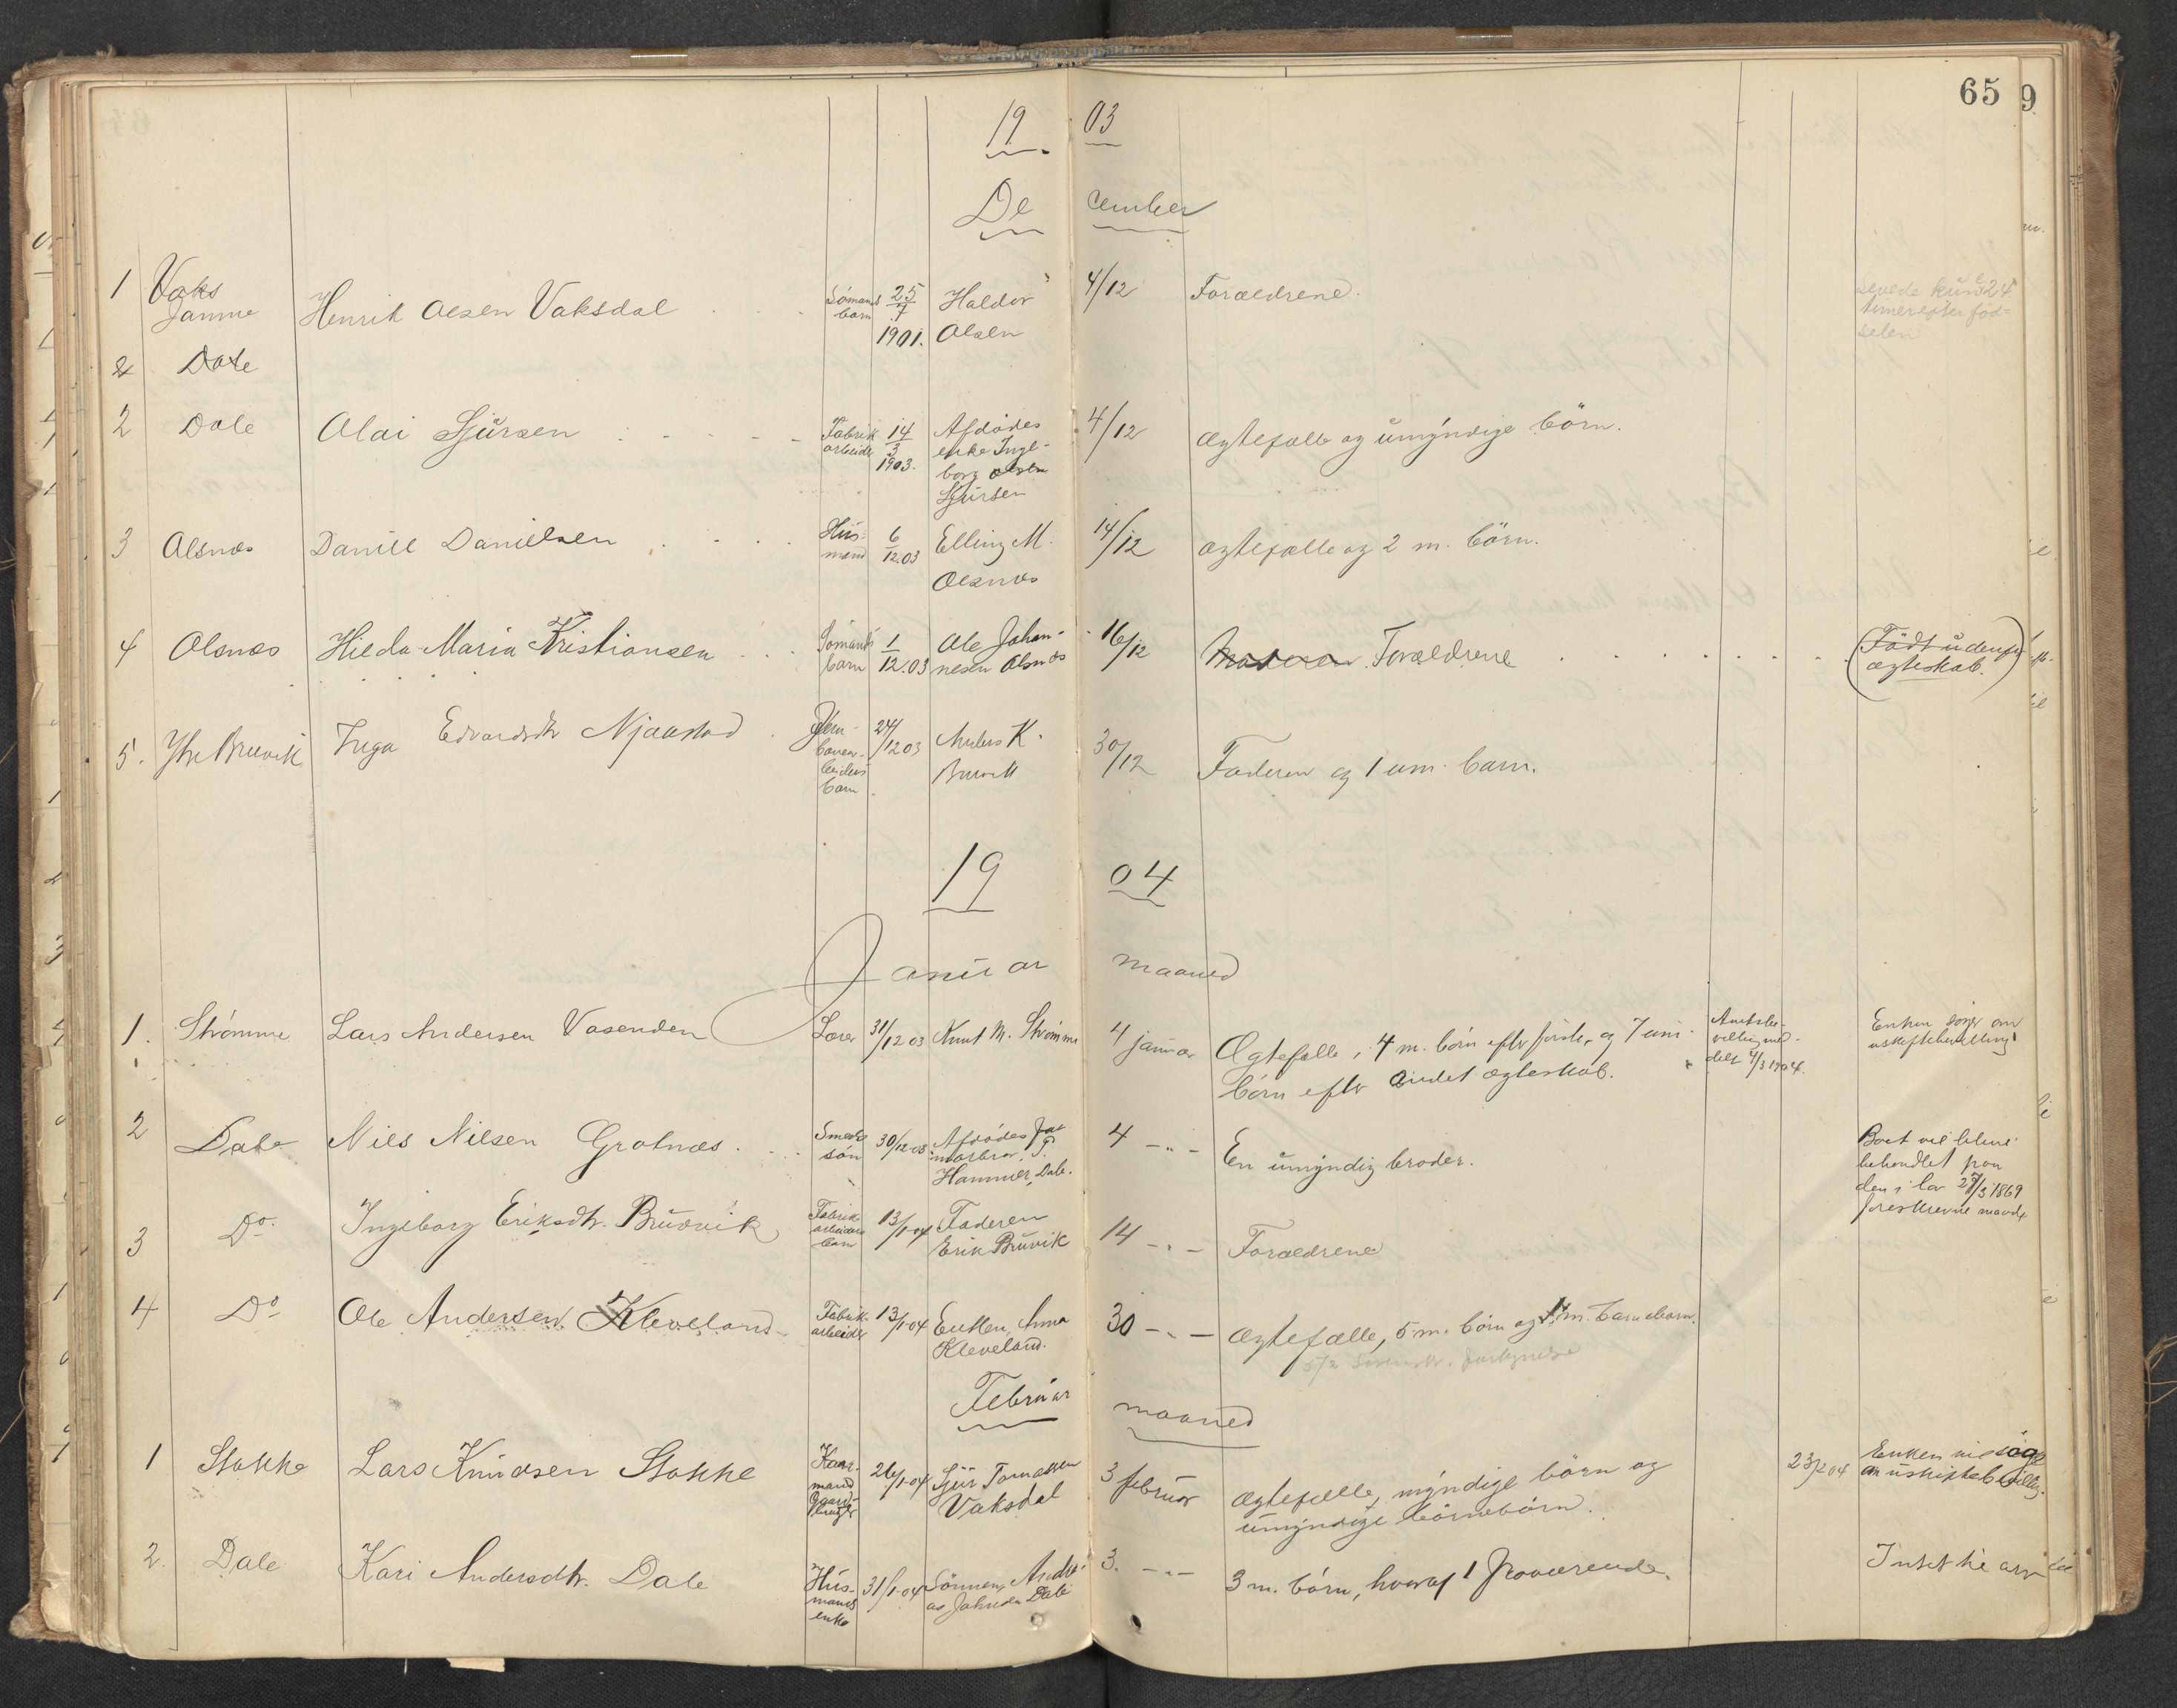 65
9
19 03
December
1 Vaks Henrik Olsen Vaksdal Sömands 25/7 Haldor 4/12 Forældrene. Levede kun 24
barn 1901. Olsen timer efter föd=
selen
2 Dale
2 Dale Olai Sjursen Fabrik 14/3 Afdödes 4/12 ægtefælle og umyndige börn.
arbeider 1903. enke Inge-
borg Olsen
Sjursen
3 Olsnæs Daniel Danielsen Hus- 6/12.03 Elling M. 14/12 ægtefælle og 2 m. börn.
mand Olsnæs
4 Olsnæs Hilda Maria Kristiansen Sömands 1/12.03 Ole Johan- 16/12 Moderen Forældrene (Födt udenfor
barn nesen Olsnæs ægteskab.)
5. Ytre Bruvik Inga Edvardsdtr Njaastad Jern- 24/12 03 Anders K. 30/12 Faderen og 1 um. barn.
banear- Bruvik
beiders
barn
19 04
Januar maaned
1. Strömme Lars Andersen Vasenden Lærer 31/12 03 Knut M. Strömme 4 januar Ægtefælle, 4 m. börn efter förste, og 7 um. Amtsbe- Enken söger om
börn efter andet ægteskab. villing med- uskiftebevilling
delt 4/3 1904.
2 Dale Niels Nilsen Grotnæs Smeds 30/12-03 Afdödes 4 -"- En umyndig broder. Boet vil blive
sön morbror, P. behandlet paa
Hammer, Dale. den i lov 27/3 1869
foreskrevne maade
3 Do. Ingeborg Eriksdtr. Bruvik Fabrik- 13/1-04 Faderen 14 -"- Forældrene
arbeiders Erik Bruvik
barn
4 Do Ole Andersen Kleveland Fabrik- 13/1-04 Enken, Anna 30 -"- Ægtefælle, 5 m. börn og 1 m. barnebarn.
arbeider Kleveland.
5/2
Februar maaned
1 Stokke Lars Knudsen Stokke Kaar- 26/1-04 Sjur Tomassen 3 februar ægtefælle, myndige börn og 23/2 04 Enken vil söge
mand Vaksdal umyndige börnebörn. om uskiftebevilling.
Gaard-
bruger
2. Dale Kari Andersdtr. Dale Hus- 31/1-04 Sönnen, Andre- 3. -"- 3 m. börn, hvoraf 1 fraværende. Intet til arv
mands as Johnsen Dale
enke